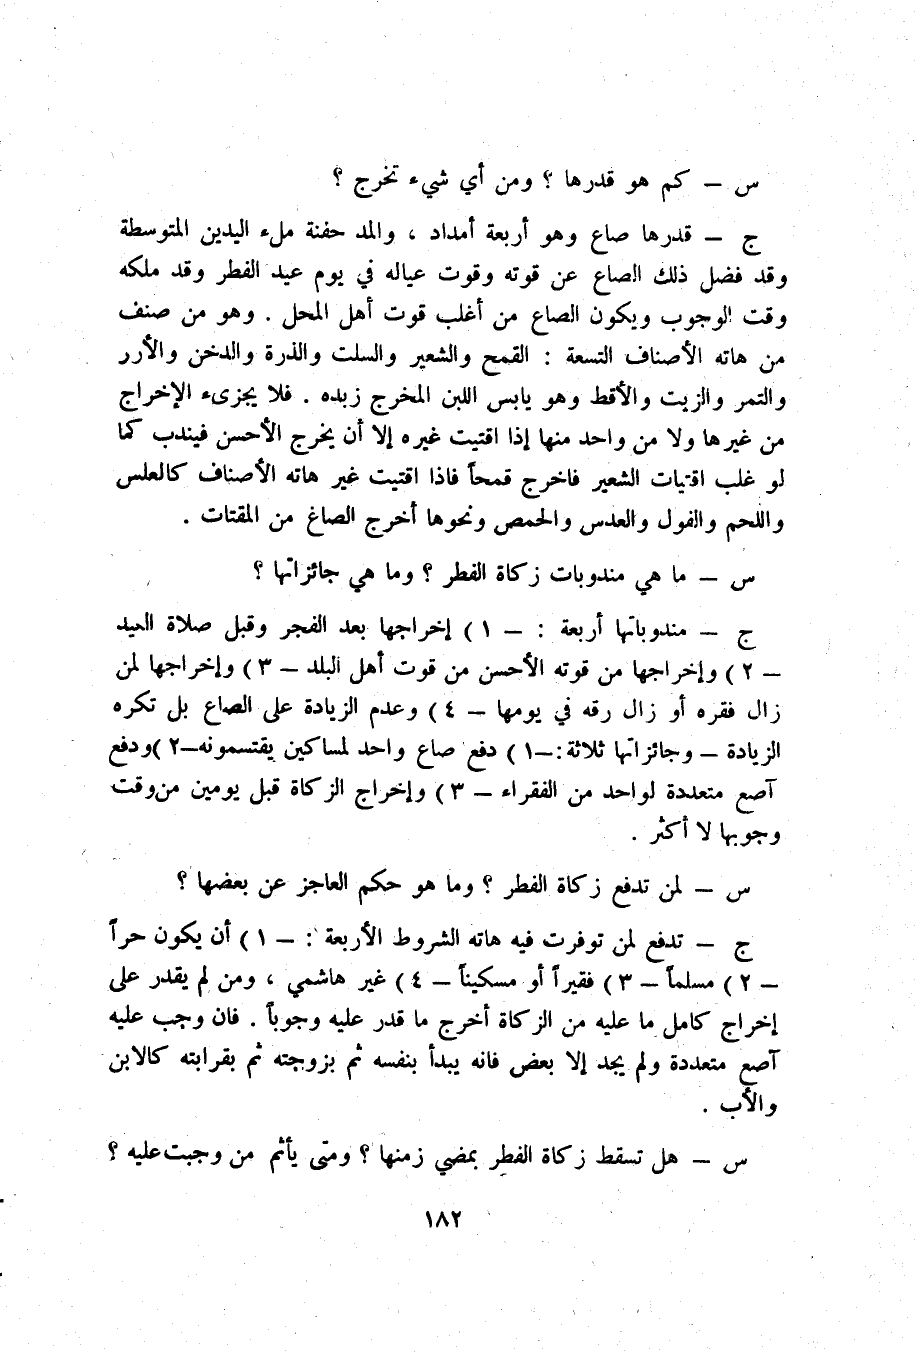 س — كم هو قدرها ؟ ومن أي شيء تخرج ؟
ج — قدرها صاع وهو أربعة أمداد ، والمد حفنة ملء اليدين المتوسطة
وقد فضل ذلك الصاع عن قوته وقوت عياله في يوم عيد الفطر وقد ملكه
وقت الوجوب ويكون الصاع من أغلب قوت أهل المحل . وهو من صنف
من هاته الأصناف التسعة : القمح والشعير والسلت والذرة والدخن والأرر
والتمر والزيت والأقط وهو يابس اللبن المخرج زبده . فلا يجزىء الإخراج
من غيرها ولا من واحد منها إذا اقتيت غيره إلا أن يخرج الأحسن فيندب كما
لو غلب اقتيات الشعير فاخرج قمحاً فاذا اقتيت غير هاته الأصناف كالعلس
واللحم والفول والعدس والحمص ونحوها أخرج الصاغ من المقتات .
س — ما هي مندوبات زكاة الفطر ؟ وما هي جائزاتها ؟
ج — مندوباتها أربعة : — ١ ) إخراجها بعد الفجر وقبل صلاة العيد
— ٢ ) وإخراجها من قوته الأحسن من قوت أهل البلد — ٣ ) وإخراجها لمن
زال فقره أو زال رقه في يومها — ٤ ) وعدم الزيادة على الصاع بل تكره
الزيادة — وجائزاتها ثلاثة :—١ ) دفع صاع واحد لمساكين يقتسمونه—٢ )ودفع
آصع متعددة لواحد من الفقراء — ٣ ) وإخراج الزكاة قبل يومين من وقت
وجوبها لا أكثر .
س — لمن تدفع زكاة الفطر ؟ وما هو حكم العاجز عن بعضها ؟
ج — تدفع لمن توفرت فيه هاته الشروط الأربعة : — ١ ) أن يكون حراً
— ٢ ) مسلماً — ٣ ) فقيراً أو مسكيناً — ٤ ) غير هاشمي ، ومن لم يقدر على
إخراج كامل ما عليه من الزكاة أخرج ما قدر عليه وجوباً . فان وجب عليه
آصع متعددة ولم يجد إلا بعض فانه يبدأ بنفسه ثم بزوجته ثم بقرابته كالابن
والأب .
س — هل تسقط زكاة الفطر بمضي زمنها ؟ ومتى يأثم من وجبت عليه ؟
١٨٢